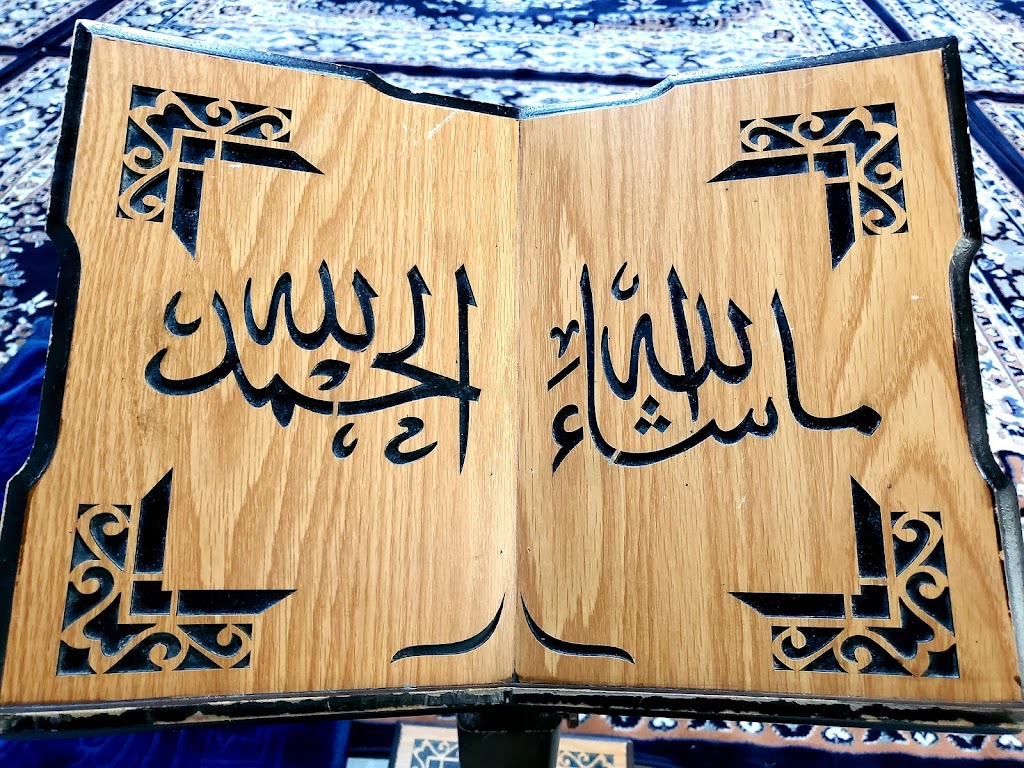 ما شاء الله
الحمد لله